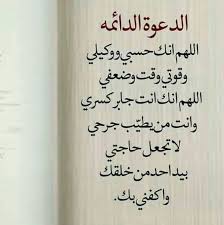 الدعوة الدائمه
اللهم انك حسبي ووكيلي
وقوتي وقت وضعفي
اللهم انك انت جابر كسري
وانت من يطيّب جرحي
لا تجعل حاجتي
بيد احد من خلقك
واكفني بك.